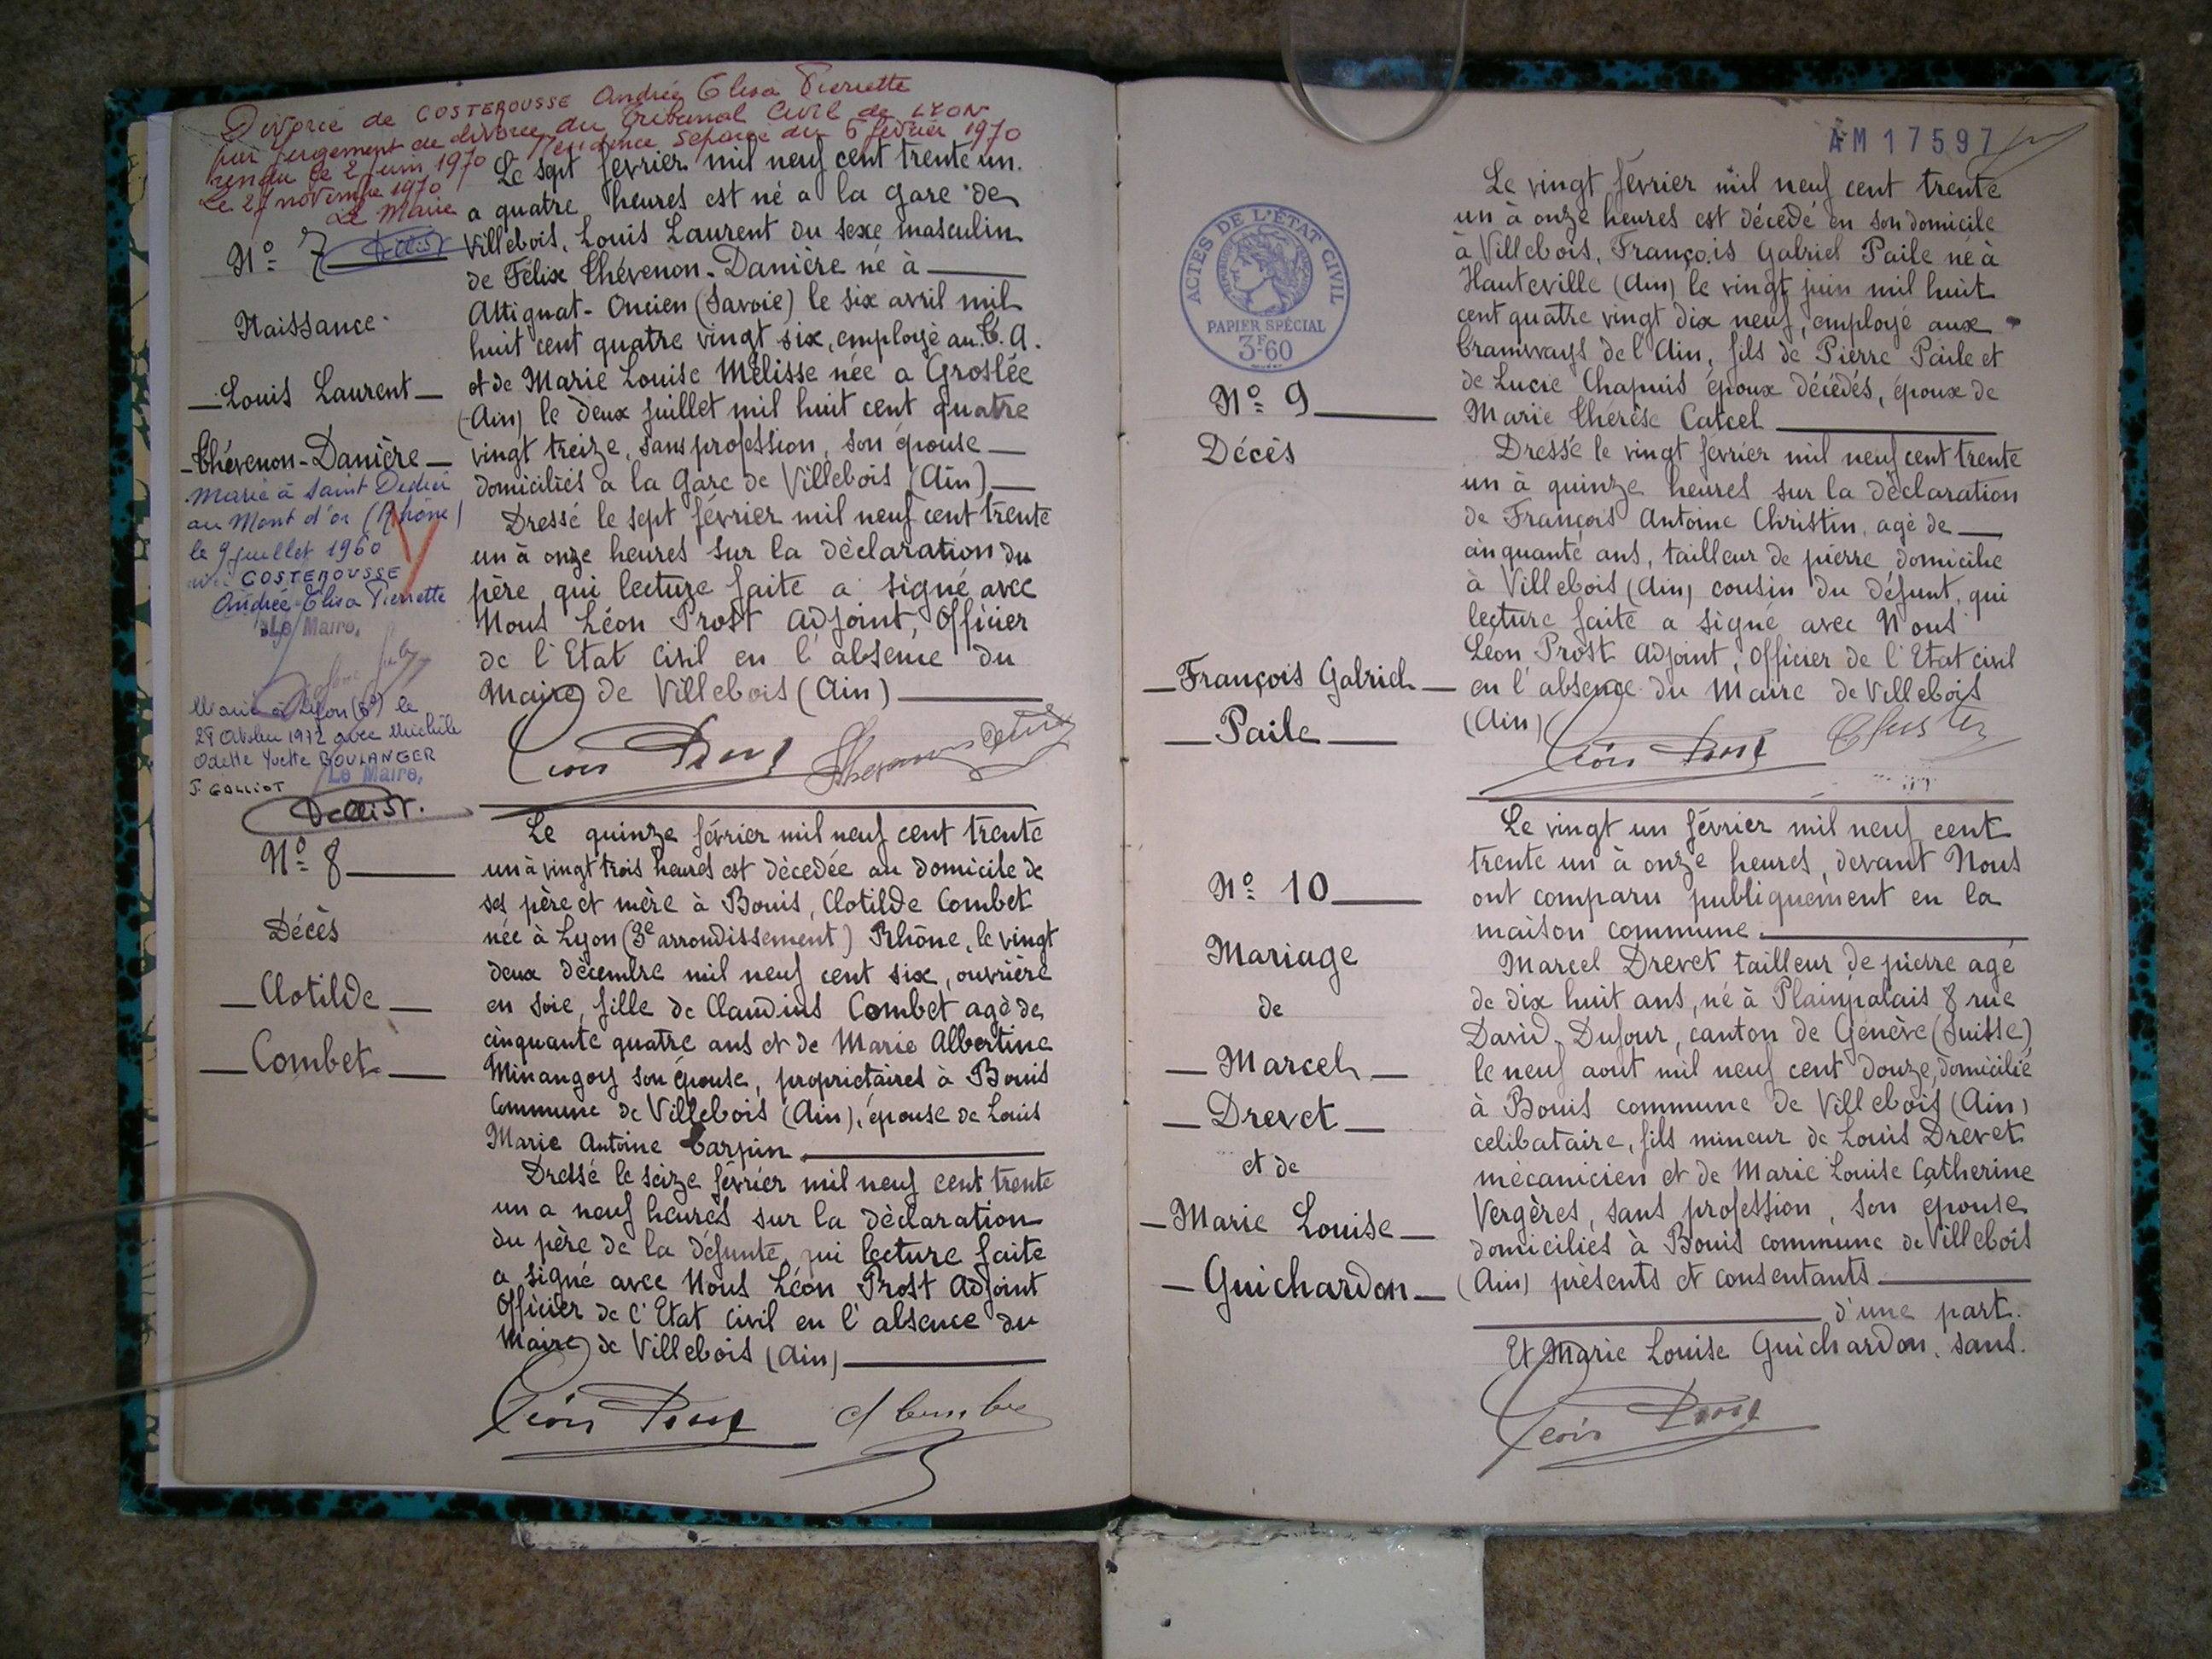 Divorcé de COSTEROUSSE Andrée Elisa Pierrette
par jugement de divorce du Tribunal Civil de LYON
rendu le 2 juin 1970 Résidence Séparée du 6 février 1970
Le 27 novembre 1970
Le Maire
N° 7
Naissance
Louis Laurent
Chévenon-Danière
Marié à Saint Didier
au Mont d'or (Rhône)
le 9 juillet 1960
avec COSTEROUSSE
Andrée Elisa Pierrette
Le Maire,
Marié à Lyon (6e) le
28 Octobre 1972 avec Michèle
Odette Yvette BOULANGER
Le Maire,
J. GALLIOT
Le sept février mil neuf cent trente un
a quatre heures est né a la gare de
Villebois, Louis Laurent du sexe masculin
de Félix Chévenon-Danière né à
Attignat-Oncien (Savoie) le six avril mil
huit cent quatre vingt six, employé au T. A.
et de Marie Louise Mélisse née a Groslée
(Ain) le deux juillet mil huit cent quatre
vingt treize, sans profession, son épouse
domiciliés a la Gare de Villebois (Ain)
Dressé le sept février mil neuf cent trente
un à onze heures sur la déclaration du
père qui lecture faite a signé avec
Nous Léon Prost adjoint, Officier
de l'Etat Civil en l'absence du
Maire de Villebois (Ain)
Léon Prost
N° 8
Décès
Clotilde
Combet
Le quinze février mil neuf cent trente
un à vingt trois heures est décedée au domicile de
ses père et mère à Bouis, Clotilde Combet
née à Lyon (3e arrondissement) Rhône, le vingt
deux décembre mil neuf cent six, ouvrière
en soie, fille de Claudius Combet agé de
cinquante quatre ans et de Marie Albertine
Minangoy son épouse, propriétaires à Bouis
Commune de Villebois (Ain), épouse de Louis
Marie Antoine Carpin
Dressé le seize février mil neuf cent trente
un a neuf heures sur la déclaration
du père de la défunte, qui lecture faite
a signé avec Nous Léon Prost Adjoint
Officier de l'Etat Civil en l'absence du
Maire de Villebois (Ain)
Léon Prost
AM 17597
ACTES DE L'ÉTAT CIVIL
PAPIER SPÉCIAL
3F60
N° 9
Décès
François Gabriel
Paile
Le vingt février mil neuf cent trente
un à onze heures est décédé en son domicile
à Villebois, François Gabriel Paile né à
Hauteville (Ain) le vingt juin mil huit
cent quatre vingt dix neuf, employé aux
Tramways de l'Ain, fils de Pierre Paile et
de Lucie Chapuis époux décédés, époux de
Marie Thérèse Carcel
Dressé le vingt février mil neuf cent trente
un à quinze heures sur la déclaration
de François Antoine Christin, agé de
cinquante ans, tailleur de pierre domicilié
à Villebois (Ain) cousin du défunt, qui
lecture faite a signé avec Nous
Léon Prost Adjoint, Officier de l'Etat civil
en l'absence du Maire de Villebois
(Ain)
Léon Prost
N° 10
Mariage
de
Marcel
Drevet
et de
Marie Louise
Guichardon
Le vingt un février mil neuf cent
trente un à onze heures, devant Nous
ont comparu publiquement en la
maison commune.
Marcel Drevet tailleur de pierre agé
de dix huit ans, né à Plainpalais 8 rue
David Dufour, canton de Genève (Suisse)
le neuf aout mil neuf cent douze, domicilié
à Bouis commune de Villebois (Ain)
celibataire, fils mineur de Louis Drevet
mécanicien et de Marie Louise Catherine
Vergères, sans profession, son épouse
domiciliés à Bouis commune de Villebois
(Ain) présents et consentants
d'une part.
Et Marie Louise Guichardon, sans
Léon Prost